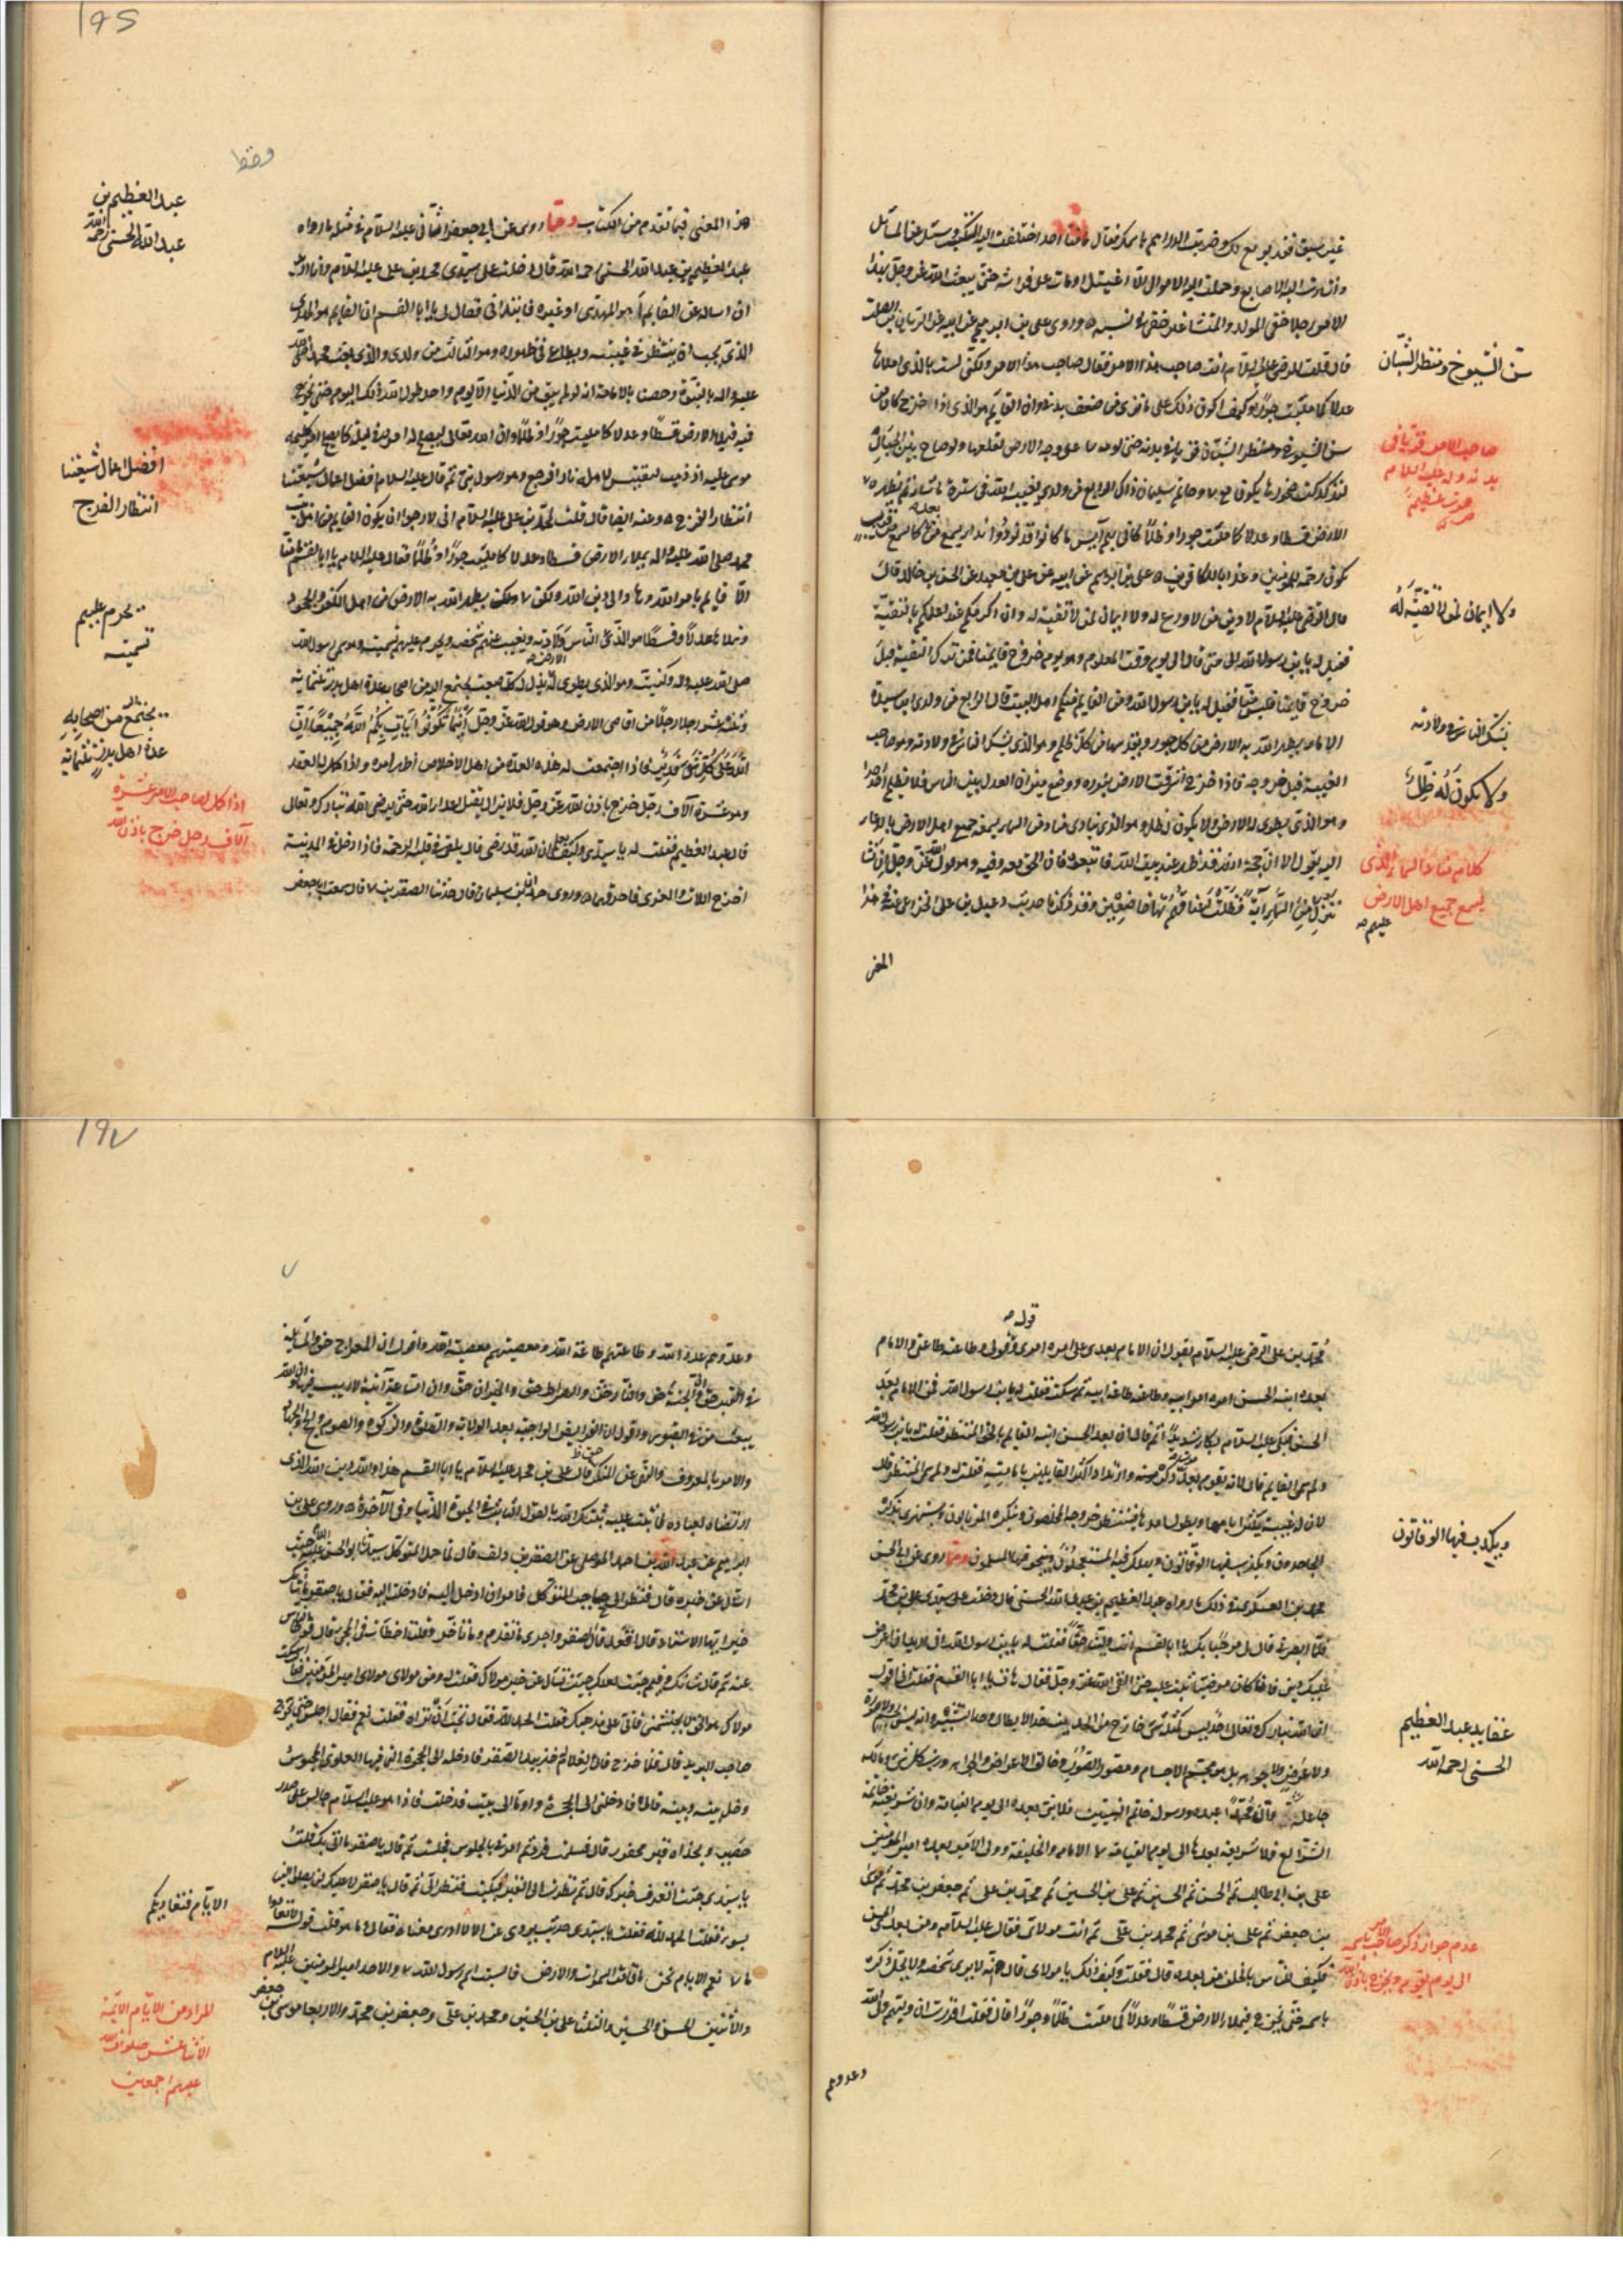 غير سبق فقد بويع لك وضربت الدراهم باسمك فقال ما منا احد اختلفت اليه الكتب وسئل عن المسائل
واشارت اليه الاصابع وحملت اليه الاموال الا اغتيل او مات على فراشه حتى يبعث الله عز وجل بهذا
الامر رجلا خفي المولد والمنشأ غير خفي في نسبه وروى علي بن ابرهيم عن ابيه عن الريان بن الصلت
قال قلت للرضا عليه السلام انت صاحب هذا الامر فقال صاحب هذا الامر ولكني لست بالذي املاها
عدلا كما ملئت جورا وكيف اكون ذلك على ما ترى من ضعف بدني وان القايم هو الذي اذا خرج كان في
سن الشيوخ ومنظر الشبان قوي في بدنه حتى لو مد يده الى اعظم شجرة على وجه الارض لقلعها ولو صاح بين الجبال
لتدكدكت صخورها يكون معه عصا موسى وخاتم سليمان ذاك الرابع من ولدي يغيبه الله في ستره ما شاء ثم يظهره
الارض قسطا وعدلا كما ملئت جورا وظلما كاني بهم آيس ما كانوا قد نودوا نداء يسمع من بعد كما يسمع من قرب
يكون رحمة للمؤمنين وعذابا للكافرين علي بن ابرهيم عن ابيه عن علي بن معبد عن الحسين بن خالد قال
قال الرضا عليه السلام لا دين لمن لا ورع له ولا ايمان لمن لا تقية له وان اكرمكم عند الله اعملكم بالتقية
فقيل له يا ابن رسول الله الى متى قال الى يوم الوقت المعلوم وهو يوم خروج قايمنا فمن ترك التقية قبل
خروج قايمنا فليس منا فقيل له يا ابن رسول الله ومن القايم منكم اهل البيت قال الرابع من ولدي ابن سيدة
الاماء يطهر الله به الارض من كل جور ويقدسها من كل ظلم وهو الذي يشك الناس في ولادته وهو صاحب
الغيبة قبل خروجه فاذا خرج اشرقت الارض بنوره ووضع ميزان العدل بين الناس فلا يظلم احد احدا
وهو الذي تطوى له الارض ولا يكون له ظل وهو الذي ينادي مناد من السماء يسمعه جميع اهل الارض بالدعاء
اليه يقول الا ان حجة الله قد ظهر عند بيت الله فاتبعوه فان الحق معه وفيه وهو قول الله عز وجل ان نشأ
ننزل عليهم من السماء آية فظلت اعناقهم لها خاضعين وقد ذكرنا حديث دعبل بن علي الخزاعي عنه في هذا
المعنى
سن الشيوخ ومنظر الشبان
صاحب الامر قويا في
بدنه وله عليه السلام
صوت عظيم
ولا ايمان لمن لا تقية له
يشك الناس في ولادته
ولا يكون له ظل
كلام مناد السماء الذي
يسمع جميع اهل الارض
195
هذا المعنى فيما تقدم من الكتاب ومما روى عن ابي جعفر الثاني عليه السلام في مثله ما رواه
عبد العظيم بن عبد الله الحسني رحمه الله قال دخلت على سيدي محمد بن علي عليه السلام وانا اريد
ان اساله عن القايم أهو المهدي او غيره فابتدأني فقال لي يا ابا القسم ان القايم هو المهدي
الذي يجب ان ينتظر في غيبته ويطاع في ظهوره وهو الثالث من ولدي والذي بعث محمدا صلى الله
عليه واله بالنبوة وخصنا بالامامة انه لو لم يبق من الدنيا الا يوم واحد لطول الله ذلك اليوم حتى يخرج
فيه فيملأ الارض قسطا وعدلا كما ملئت جورا وظلما وان الله تعالى يصلح له امره في ليلة كما يصلح امر كليمه
موسى عليه اذ ذهب ليقتبس لاهله نارا فرجع وهو رسول نبي ثم قال عليه السلام افضل اعمال شيعتنا
انتظار الفرج وعنه ايضا قال قلت لمحمد بن علي عليه السلام اني لارجو ان يكون القايم من اهل بيت
محمد صلى الله عليه واله يملا الارض قسطا وعدلا كما ملئت جورا وظلما فقال عليه السلام يا ابا القسم ما منا
الا قايم بامر الله وهاد الى دين الله ولكن يطهر الله به الارض من اهل الكفر والجحود
ويملاها عدلا وقسطا هو الذي يخفى على الناس ولادته ويغيب عنهم شخصه ويحرم عليهم تسميته وهو سمي رسول الله
صلى الله عليه واله وكنيه وهو الذي تطوى له الارض ويذل له كل صعب يجتمع اليه من اصحابه عدة اهل بدر ثلثماية
وثلثة عشر رجلا من اقاصي الارض وهو قول الله عز وجل أينما تكونوا يأت بكم الله جميعا ان
الله على كل شيء قدير فاذا اجتمعت له هذه العدة من اهل الاخلاص اظهر امره واذا كمل له العقد
وهو عشرة آلاف رجل خرج باذن الله عز وجل فلا يزال يقتل اعداء الله حتى يرضى الله تبارك وتعالى
قال عبد العظيم فقلت له يا سيدي وكيف يعلم ان الله قد رضي قال يلقي في قلبه الرحمة فاذا دخل المدينة
اخرج اللات والعزى فاحرقهما وروى حمدان بن سليمان قال حدثنا الصقر بن قال سمعت ابا جعفر
عبد العظيم بن
عبد الله الحسني رحمه الله
افضل اعمال شيعتنا
انتظار الفرج
يحرم عليهم
تسميته
يجتمع من اصحابه
عدة اهل بدر ثلثماية
اذا كمل لصاحب الامر عشرة
آلاف رجل خرج باذن الله
محمد بن علي الرضا عليه السلام يقول ان الامام بعدي علي امره امري وقوله قولي وطاعته طاعتي والامام
بعده ابنه الحسن امره امر ابيه وطاعته طاعة ابيه ثم سكت فقلت له يا ابن رسول الله فمن الامام بعد
الحسن فبكى عليه السلام بكاء شديدا ثم قال ان بعد الحسن ابنه القايم بالحق المنتظر فقلت له يا ابن رسول الله
ولم سمي القايم قال لانه يقوم بعد موت ذكره وارتداد اكثر القايلين بامامته فقلت له ولم سمي المنتظر قال
لان له غيبة يكثر ايامها ويطول امدها فينتظر خروجه المخلصون وينكره المرتابون ويستهزئ بذكره
الجاحدون ويكذب فيها الوقاتون ويهلك فيها المستعجلون وينجو فيها المسلمون ومما روى عن ابي الحسن
علي بن محمد العسكري في ذلك ما رواه عبد العظيم بن عبد الله الحسني قال دخلت على سيدي علي بن محمد
فلما ابصرني قال لي مرحبا بك يا ابا القسم انت ولينا حقا فقلت له يا ابن رسول الله اني اريد ان اعرض
عليك ديني فان كان مرضيا ثبت عليه حتى القى الله عز وجل فقال هات يا ابا القسم فقلت اني اقول
ان الله تبارك وتعالى واحد ليس كمثله شيء خارج من الحدين حد الابطال وحد التشبيه وانه ليس بجسم ولا صورة
ولا عرض ولا جوهر بل هو مجسم الاجسام ومصور الصور وخالق الاعراض والجواهر ورب كل شيء ومالكه
جاعله وان محمدا عبده ورسوله خاتم النبيين فلا نبي بعده الى يوم القيامة وان شريعته خاتمة
الشرايع فلا شريعة بعدها الى يوم القيامة الامام والخليفة وولي الامر بعده امير المؤمنين
علي بن ابي طالب ثم الحسن ثم الحسين ثم علي بن الحسين ثم محمد بن علي ثم جعفر بن محمد ثم موسى
بن جعفر ثم علي بن موسى ثم محمد بن علي ثم انت مولاي فقال عليه السلام ومن بعدي الحسن
فكيف للناس بالخلف من بعده قال فقلت وكيف ذلك يا مولاي قال لانه لا يرى شخصه ولا يحل ذكره
باسمه حتى يخرج فيملا الارض قسطا وعدلا كما ملئت ظلما وجورا قال فقلت اقررت ان وليهم ولي الله
وعدوهم
ويكذب فيها الوقاتون
عقايد عبد العظيم
الحسني رحمه الله
عدم جواز ذكر صاحب الامر باسمه
الى يوم يقوم ويخرج باذن الله
197
وعدوهم عدو الله وطاعتهم طاعة الله ومعصيتهم معصية الله واقول ان المعراج حق والمسايلة
في القبر حق وان الجنة حق والنار حق والصراط حق والميزان حق وان الساعة آتية لا ريب فيها وان الله
يبعث من في القبور واقول ان الفرايض الواجبة بعد الولاية الصلوة والزكوة والصوم والحج والجهاد
والامر بالمعروف والنهي عن المنكر فقال علي بن محمد عليه السلام يا ابا القسم هذا والله دين الله الذي
ارتضاه لعباده فاثبت عليه ثبتك الله بالقول الثابت في الحيوة الدنيا وفي الآخرة وروى علي بن
ابرهيم عن عبد الله بن احمد الموصلي عن الصقر بن دلف قال لما حمل المتوكل سيدنا ابو الحسن عليه السلام جئت
اسال عن خبره قال فنظر الي حاجب المتوكل فامر ان ادخل اليه فادخلت اليه فقال يا صقر ما شانك
خيرا ايها الاستاد قال اقعد قال الصقر واخذني ما تقدم وما تاخر وقلت اخطأت في المجيء قال فوحى الناس
عنه ثم قال ما شانك وفيم جئت لعلك جئت تسال عن خبر مولاك فقلت له ومن مولاي مولاي امير المؤمنين فقال اسكت
مولاك هو الحق لا تحتشمني فاني على مذهبك فقلت الحمد لله فقال تحب ان تراه فقلت نعم فقال اجلس حتى يخرج
صاحب البريد قال فلما خرج قال لغلام له خذ بيد الصقر فادخله الى الحجرة التي فيها العلوي المحبوس
وخل بينه وبينه قال فادخلني الى الحجرة واومأ الى بيت فدخلت فاذا هو عليه السلام جالس على صدر
حصير وبحذاه قبر محفور قال فسلمت فرد ثم امرني بالجلوس فجلست ثم قال يا صقر ما اتى بك قلت
يا سيدي جئت اتعرف خبرك قال ثم نظرت الى القبر فبكيت فنظر الي ثم قال يا صقر لا عليك لن يصلوا الينا
بسوء فقلت الحمد لله فقلت يا سيدي حديث يروى عن لا ادري معناه فقال وما هو قلت قوله لا تعادوا
الايام نعم الايام نحن ما قامت السموات والارض فالسبت اسم رسول الله والاحد امير المؤمنين عليه السلام
والاثنين الحسن والحسين والثلثا علي بن الحسين ومحمد بن علي وجعفر بن محمد والاربعا موسى بن جعفر
الايام فتعاديكم
المراد من الايام الائمة
الاثنا عشر صلوات الله
عليهم اجمعين